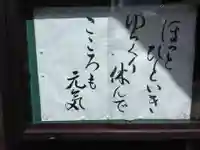 ほっとひといき
ゆっくり休んで
こころも
元気